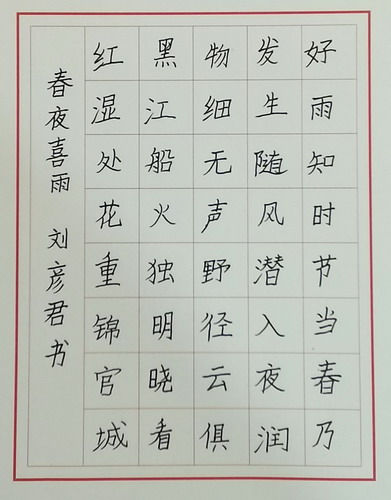 好雨知时节当春乃
发生随风潜入夜润
物细无声野径云俱
黑江船火独明晓看
红湿处花重锦官城
春夜喜雨 刘彦君书